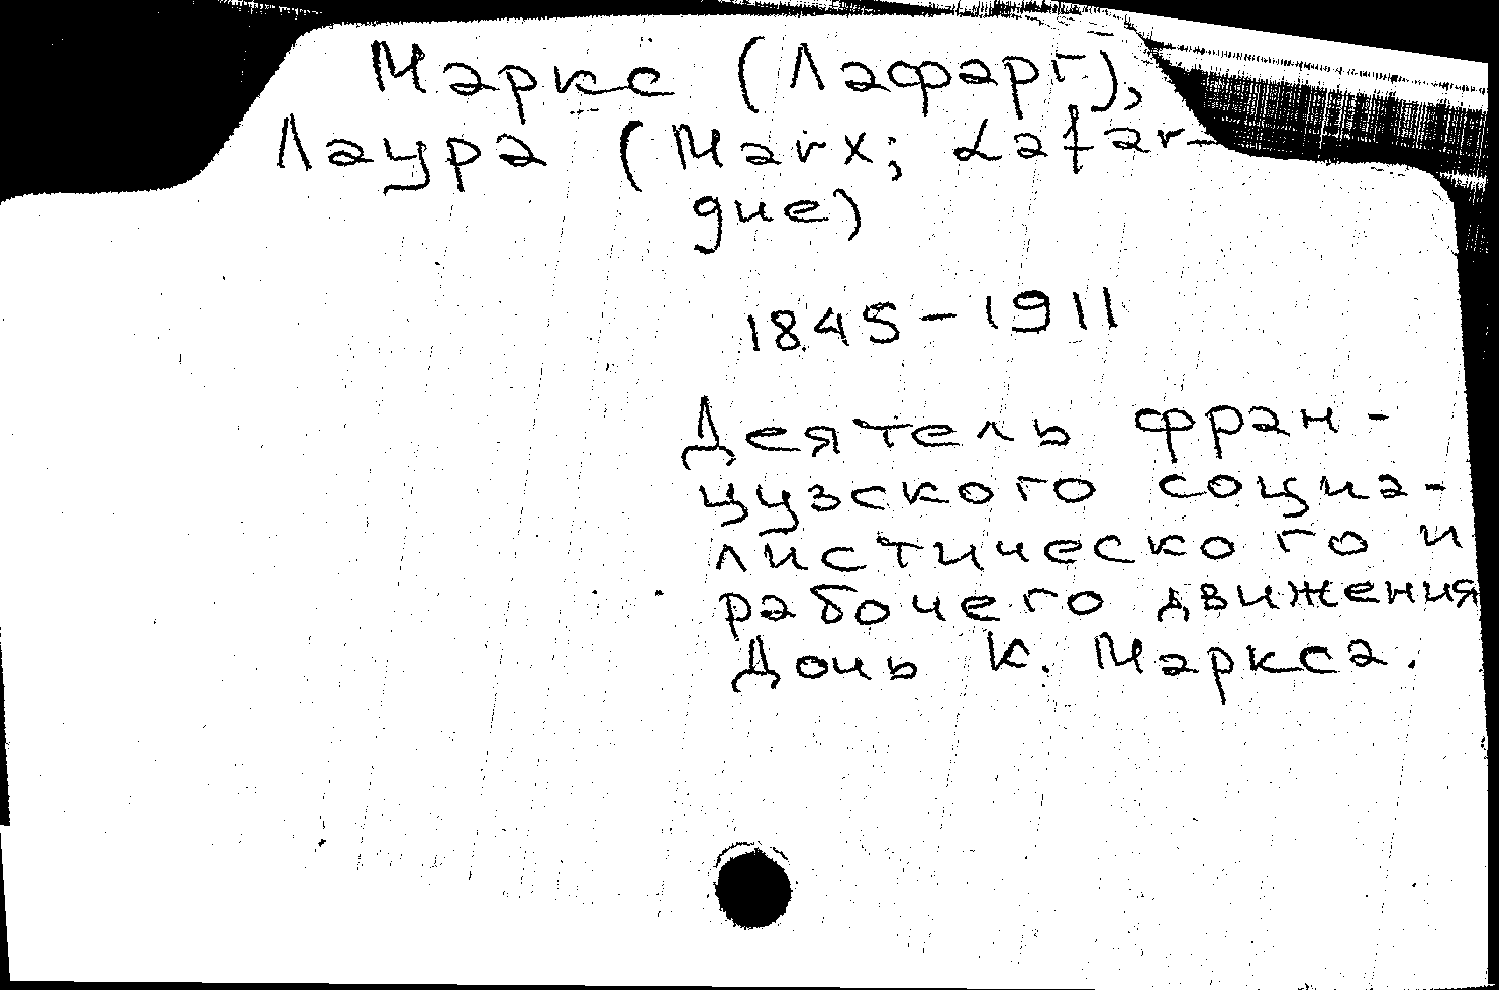 Маркс (Лафарг),
Лаура (Marx; Lafar-
gue)
1845-1911
Деятель фран-
цузского социа-
листического и
рабочего движения
Дочь К. Маркса.